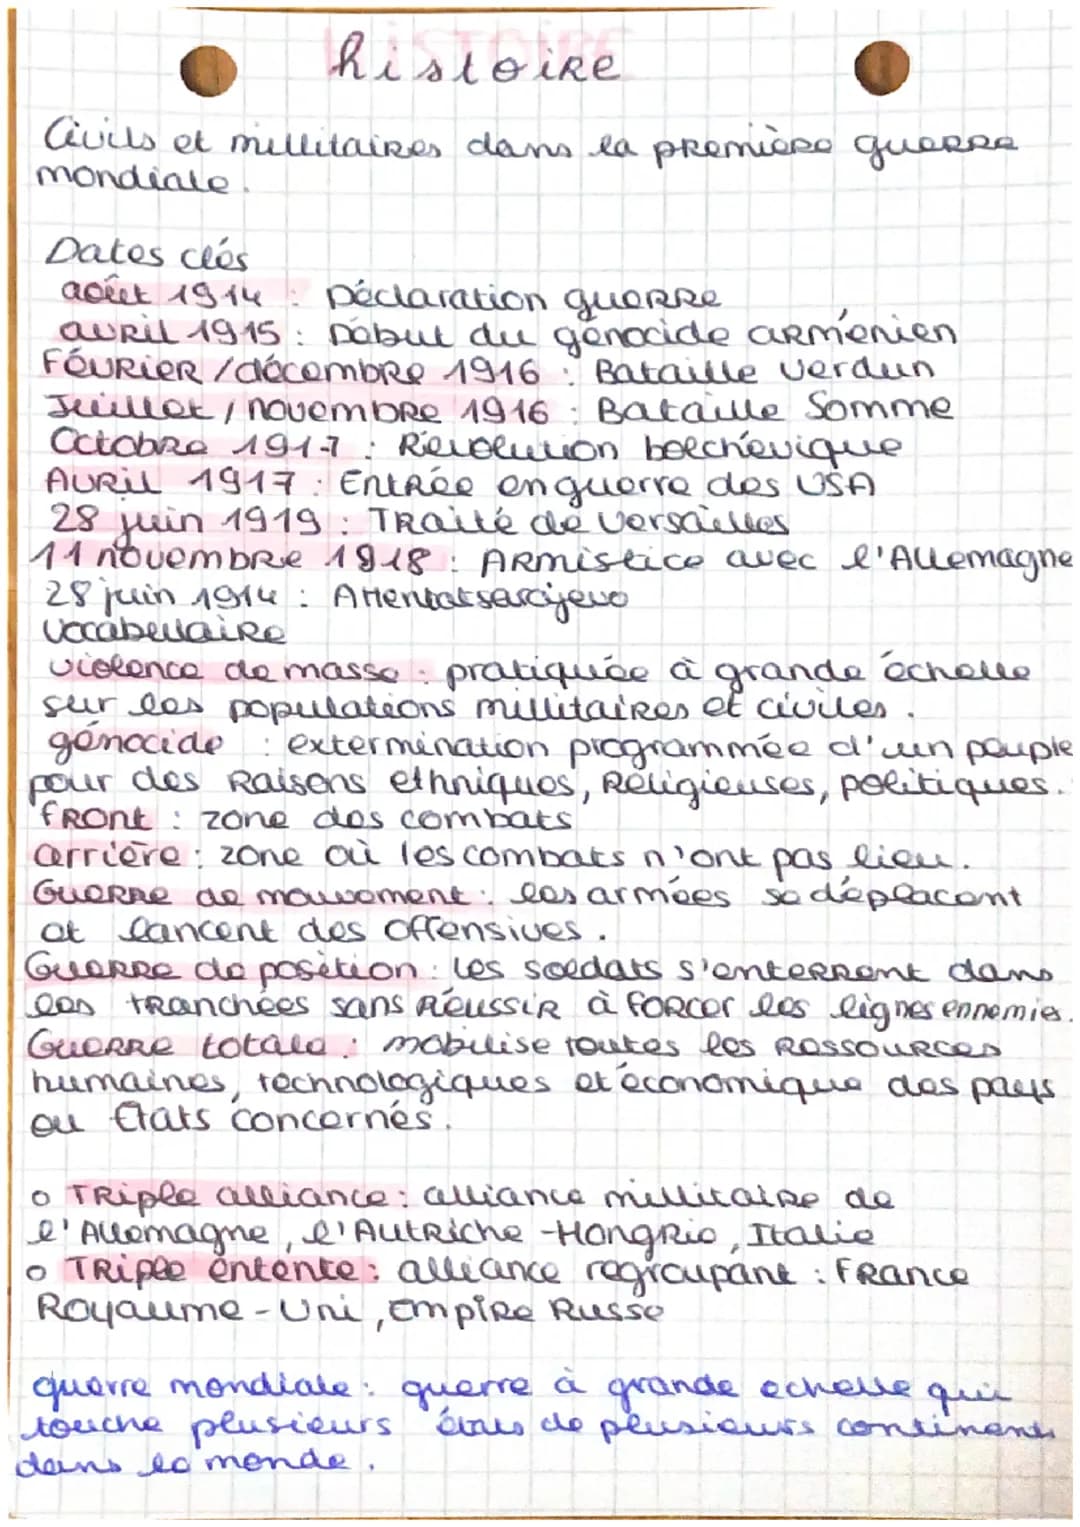 histoire
Civils et millitaires dans la première guerre
mondiale.
Dates clés
août 1914 : Déclaration guerre
avril 1915 : Début du génocide arménien
Février / décembre 1916 : Bataille Verdun
Juillet / novembre 1916 : Bataille Somme
Octobre 1917 : Révolution bolchévique
Avril 1917 : Entrée en guerre des USA
28 juin 1919 : Traité de Versailles
11 novembre 1918 : Armistice avec l'Allemagne
28 juin 1914 : Attentat sarajevo
Vocabulaire
violence de masse : pratiquée à grande échelle
sur les populations millitaires et civiles.
génocide : extermination programmée d'un peuple
pour des raisons ethniques, religieuses, politiques.
front : zone des combats
arrière : zone où les combats n'ont pas lieu.
Guerre de mouvement : les armées se déplacent
et lancent des offensives.
Guerre de position : les soldats s'enterrent dans
les tranchées sans réussir à forcer les lignes ennemies.
Guerre totale : mobilise toutes les ressources
humaines, technologiques et économique des pays
ou États concernés.
o Triple alliance : alliance millitaire de
l'Allemagne, l'Autriche-Hongrie, Italie
o Triple entente : alliance regroupant : France
Royaume-Uni, empire Russe
guerre mondiale : guerre à grande echelle qui
touche plusieurs états de plusieurs continents
dans le monde.